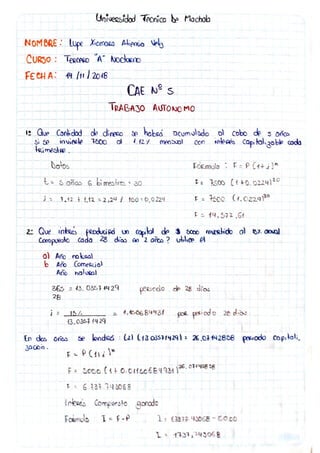 Universidad Técnica de Machala
NOMBRE: Lupe Xiomara Atiencia Vely
CURSO: TERCERO "A" Nocturno
FECHA: 19 /11 / 2018
CAE Nº 5
TRABAJO AUTONOMO
1: Que Cantidad de dinero se habrá acumulado al cabo de 5 años
si se invierte 7500 al 1.12 % mensual con interés capitalizable cada
bimestre.
Datos Formula: F = P (1+i)ⁿ
t = 5 años 6 bimestres = 30 F = 7500 (1+0.0224)³⁰
i = 1,12 + 1,12 = 2,24 / 100 = 0,0224 F = 7500 (1.0224)³⁰
F = 14,577,
2: Que interés producirá un capital de $ 5000 invertido al 15% anual
Compuesto cada 28 días en 2 años? utilice el
a) Año natural
b Año Comercial
Año natural
365 = 13,03571429 periodo de 28 días
28
i = 15% = 1,150684931 por periodo 28 días
13,03571429
En dos años se tendrá: (2) (13.03571429) = 26,07142858 periodo capitali,
zacion.
F = P (1+i)ⁿ
F = 5000 (1+ 0.01150684931)
F = 6 737.743068
Interés Compuesto ganado
Formula I = F-P I = 6737.743068 - 5000
I = 1737,743068